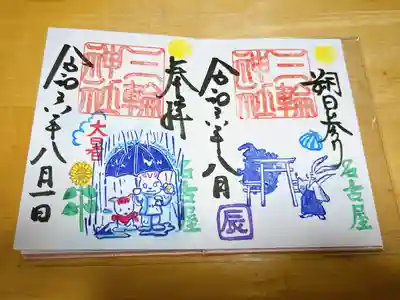 朔日参り
三輪神社
令和六年八月
名古屋
辰
奉拝
三輪神社
令和六年八月一日
大暑
名古屋